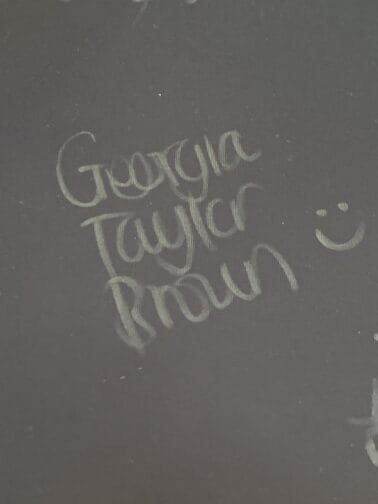 Georgia
Taylor
Brown